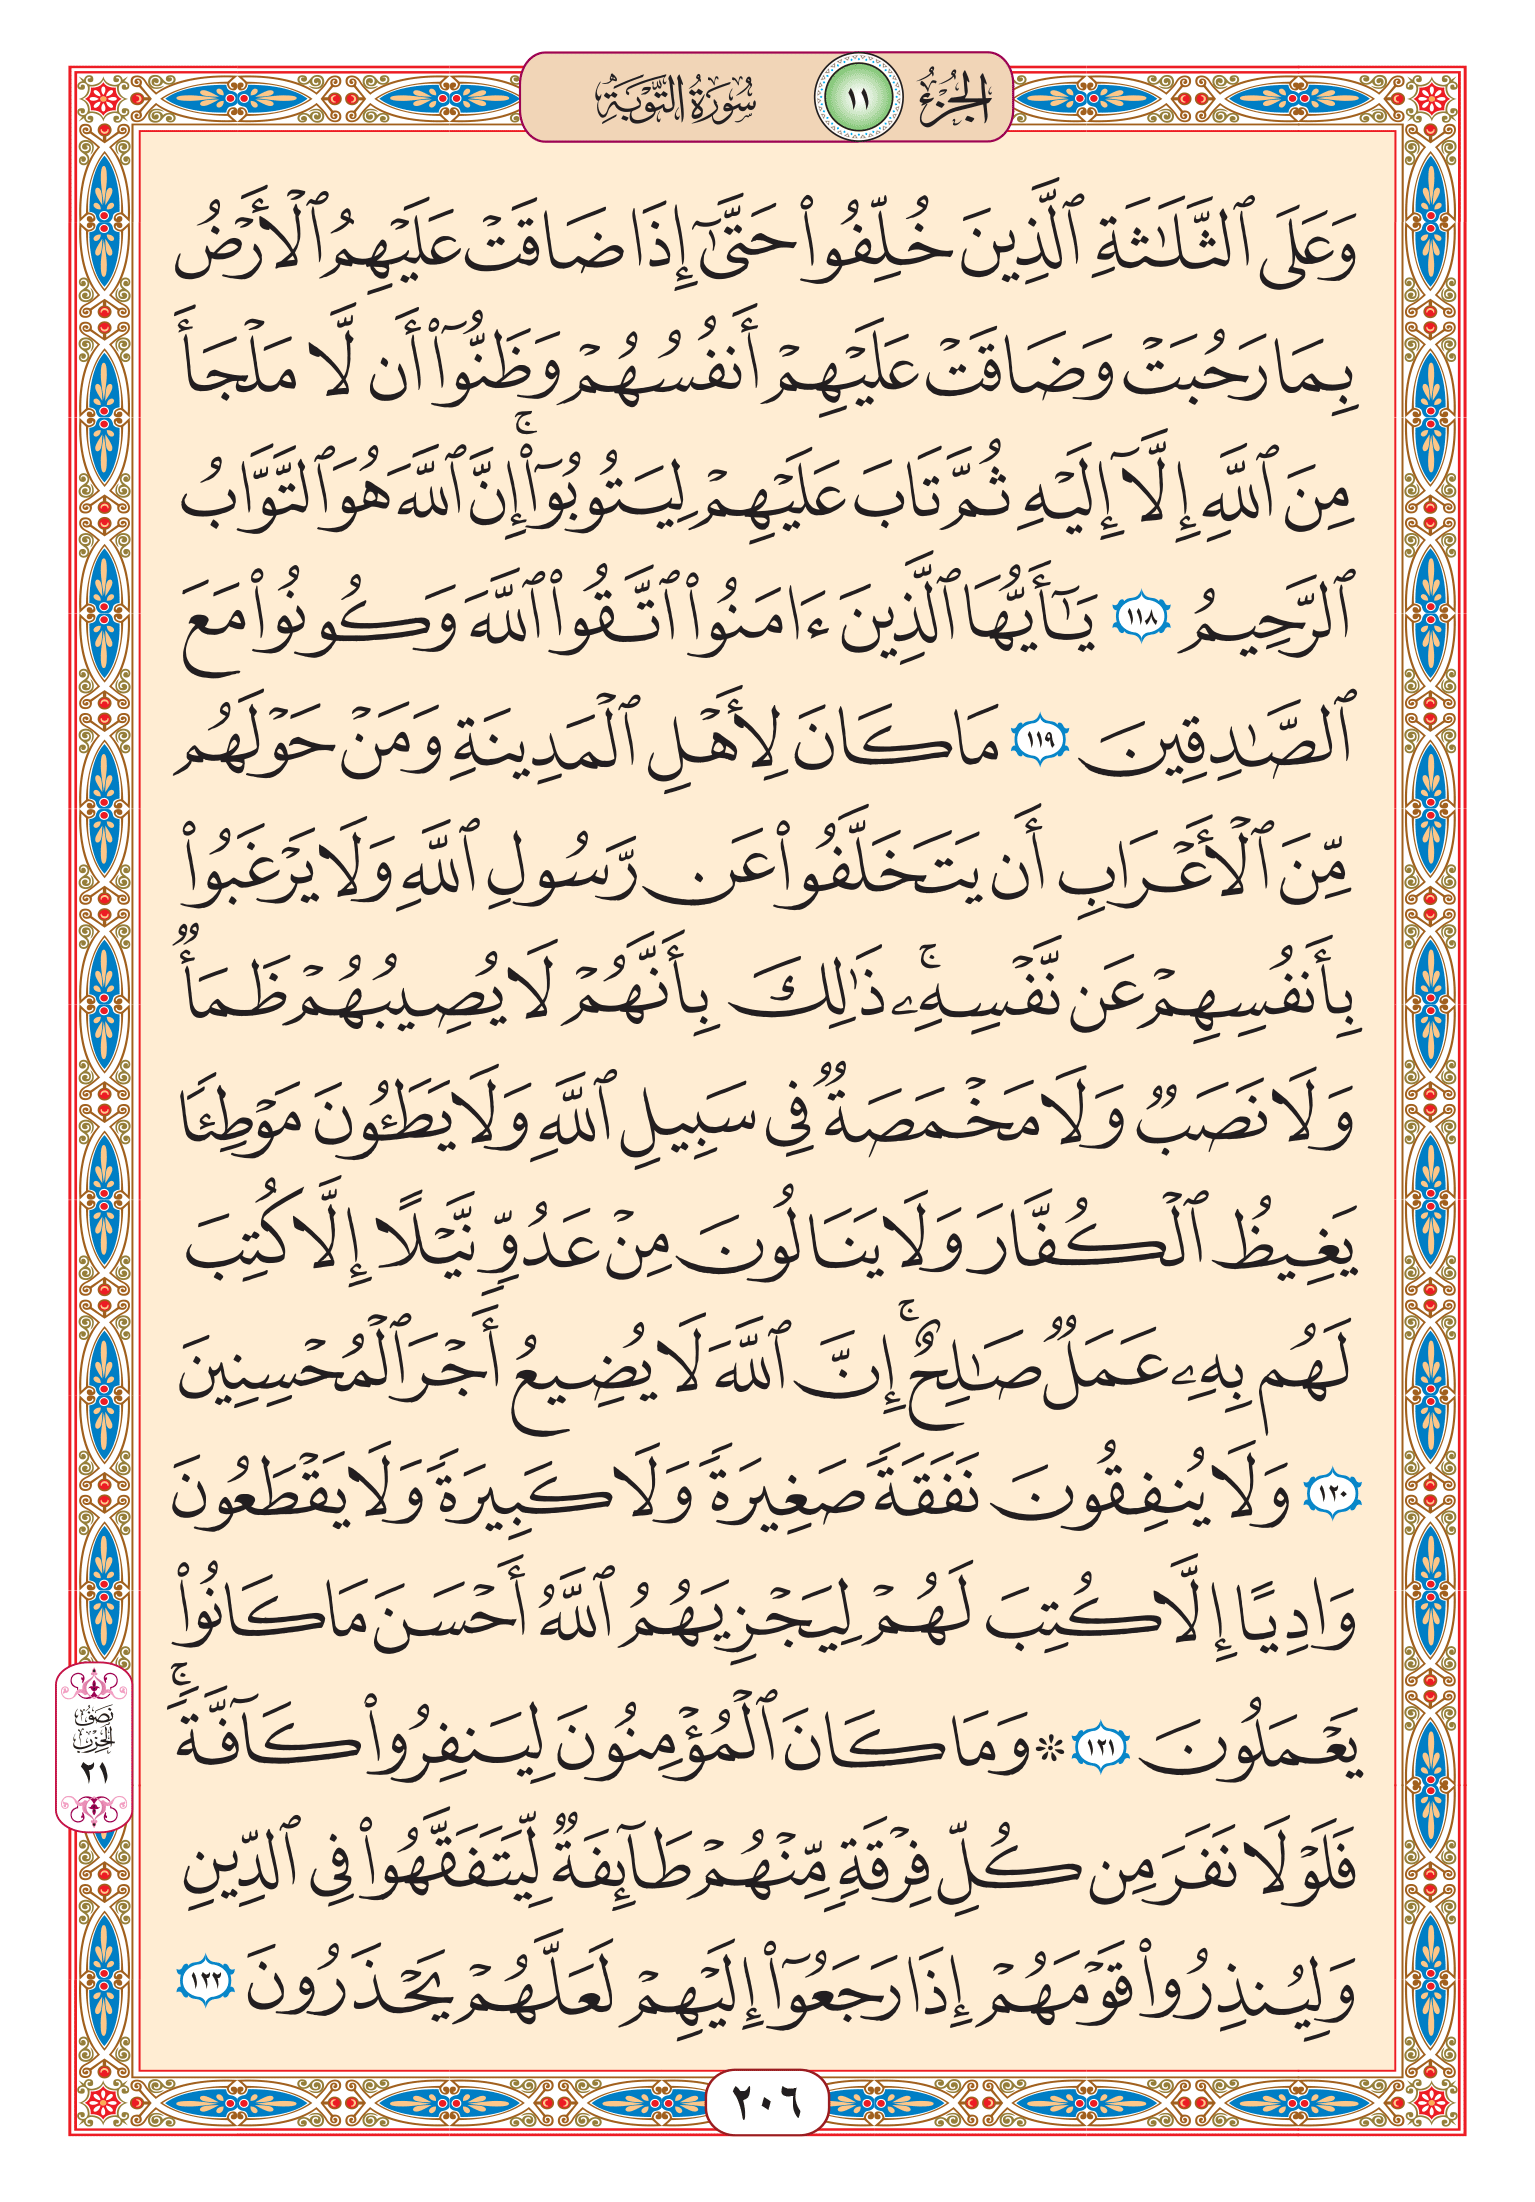 الجزء ١١ سورة التوبة
وَعَلَى ٱلثَّلَٰثَةِ ٱلَّذِينَ خُلِّفُوا۟ حَتَّىٰٓ إِذَا ضَاقَتْ عَلَيْهِمُ ٱلْأَرْضُ
بِمَا رَحُبَتْ وَضَاقَتْ عَلَيْهِمْ أَنفُسُهُمْ وَظَنُّوٓا۟ أَن لَّا مَلْجَأَ
مِنَ ٱللَّهِ إِلَّآ إِلَيْهِ ثُمَّ تَابَ عَلَيْهِمْ لِيَتُوبُوٓا۟ ۚ إِنَّ ٱللَّهَ هُوَ ٱلتَّوَّابُ
ٱلرَّحِيمُ ١١٨ يَٰٓأَيُّهَا ٱلَّذِينَ ءَامَنُوا۟ ٱتَّقُوا۟ ٱللَّهَ وَكُونُوا۟ مَعَ
ٱلصَّٰدِقِينَ ١١٩ مَا كَانَ لِأَهْلِ ٱلْمَدِينَةِ وَمَنْ حَوْلَهُم
مِّنَ ٱلْأَعْرَابِ أَن يَتَخَلَّفُوا۟ عَن رَّسُولِ ٱللَّهِ وَلَا يَرْغَبُوا۟
بِأَنفُسِهِمْ عَن نَّفْسِهِۦ ۚ ذَٰلِكَ بِأَنَّهُمْ لَا يُصِيبُهُمْ ظَمَأٌ
وَلَا نَصَبٌ وَلَا مَخْمَصَةٌ فِى سَبِيلِ ٱللَّهِ وَلَا يَطَـُٔونَ مَوْطِئًا
يَغِيظُ ٱلْكُفَّارَ وَلَا يَنَالُونَ مِنْ عَدُوٍّ نَّيْلًا إِلَّا كُتِبَ
لَهُم بِهِۦ عَمَلٌ صَٰلِحٌ ۚ إِنَّ ٱللَّهَ لَا يُضِيعُ أَجْرَ ٱلْمُحْسِنِينَ
١٢٠ وَلَا يُنفِقُونَ نَفَقَةً صَغِيرَةً وَلَا كَبِيرَةً وَلَا يَقْطَعُونَ
وَادِيًا إِلَّا كُتِبَ لَهُمْ لِيَجْزِيَهُمُ ٱللَّهُ أَحْسَنَ مَا كَانُوا۟
يَعْمَلُونَ ١٢١ ۞ وَمَا كَانَ ٱلْمُؤْمِنُونَ لِيَنفِرُوا۟ كَآفَّةً ۚ
فَلَوْلَا نَفَرَ مِن كُلِّ فِرْقَةٍ مِّنْهُمْ طَآئِفَةٌ لِّيَتَفَقَّهُوا۟ فِى ٱلدِّينِ
وَلِيُنذِرُوا۟ قَوْمَهُمْ إِذَا رَجَعُوٓا۟ إِلَيْهِمْ لَعَلَّهُمْ يَحْذَرُونَ ١٢٢
نصف
الحزب
٢١
٢٠٦